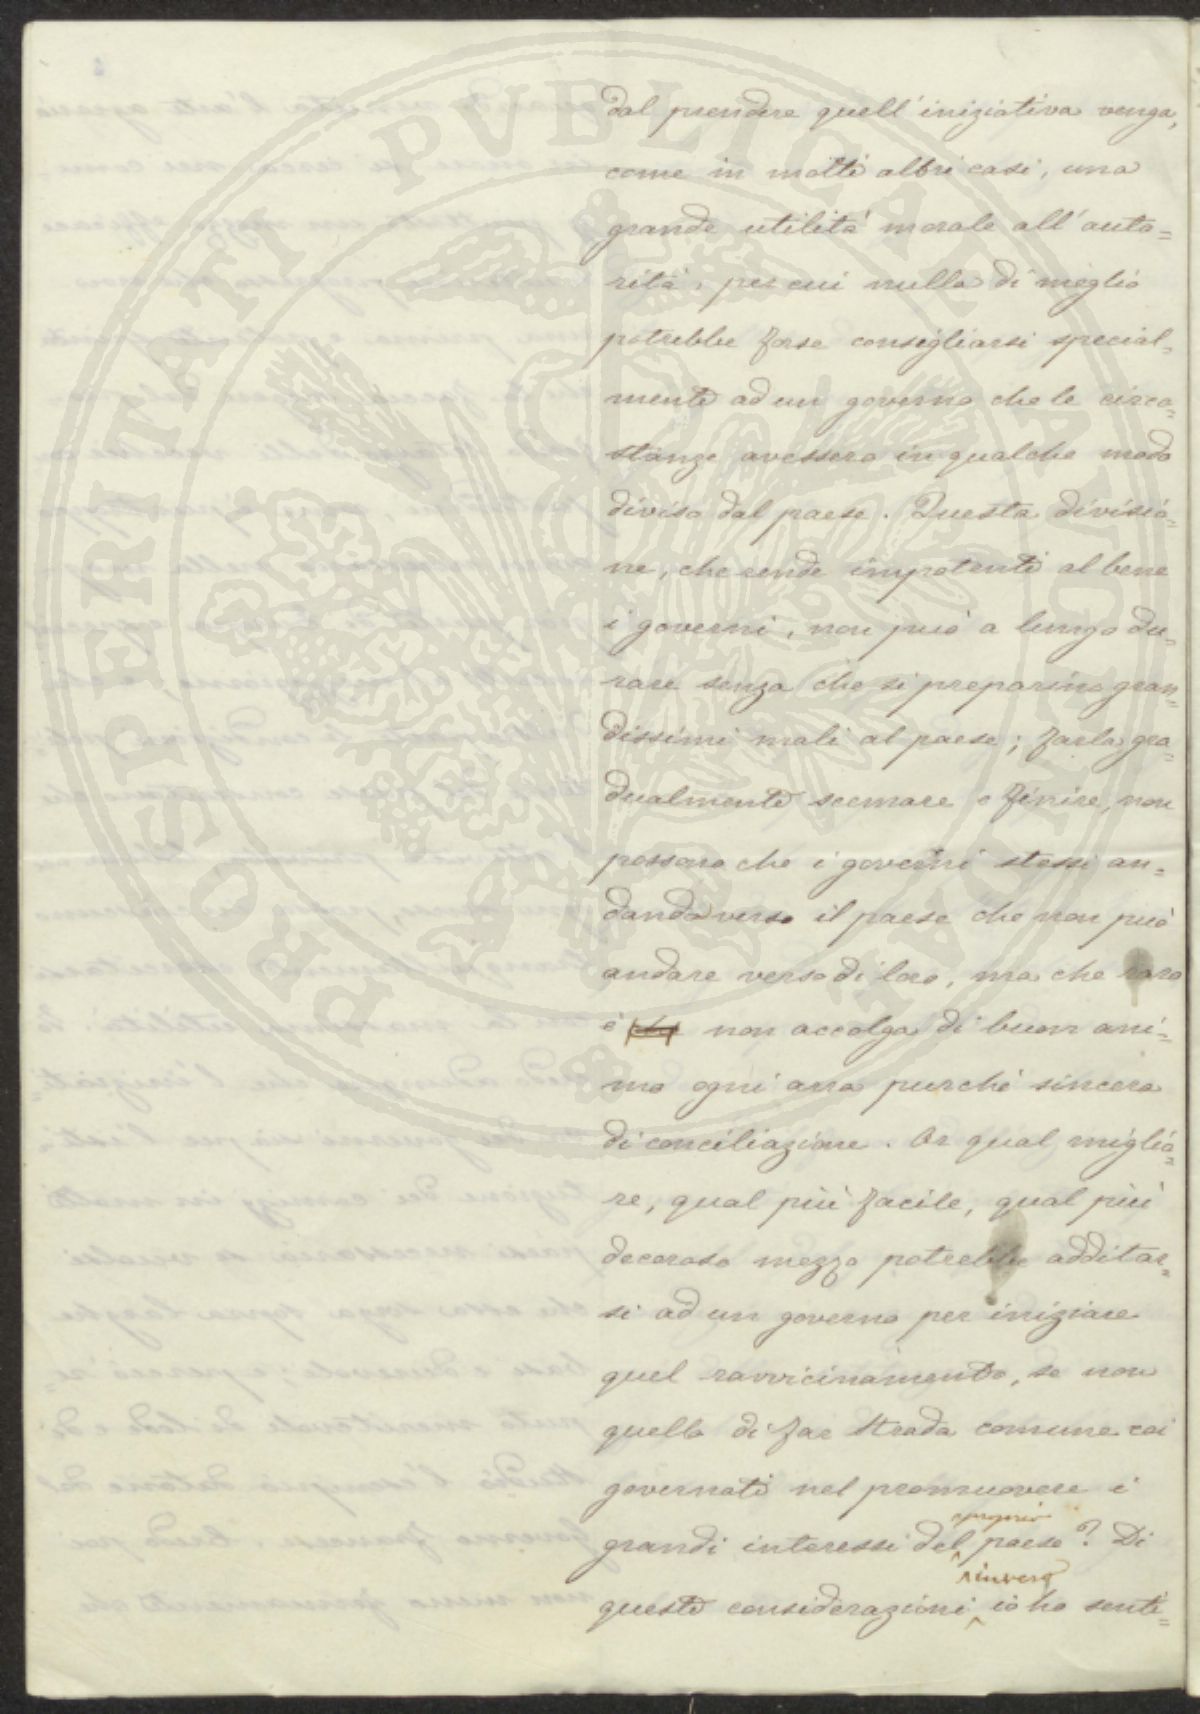 PROSPERITATI PVBLICAE AVGENDAE
dal prendere quell'iniziativa venga,
come in molti altri casi, una
grande utilità morale all'auto=
rità, per cui nulla di meglio
potrebbe forse consigliarsi special=
mente ad un governo che le circo=
stanze avessero in qualche modo
diviso dal paese. Questa divisio=
ne, che rende impotenti al bene
i governi, non può a lungo du=
rare senza che si preparino gran=
dissimi mali al paese; farla gra=
dualmente scemare e finire, non
possono che i governi stessi an=
dando verso il paese che non può
andare verso di loro, ma che raro
è non accolga di buon ani=
mo ogni arra purchè sincera
di conciliazione. Or qual miglio=
re, qual più facile, qual più
decoroso mezzo potrebbe additar=
si ad un governo per iniziare
quel ravvicinamento, se non
quello di far strada comune coi
governati nel promuovere i
proprio
grandi interessi del paese? Di
invero
queste considerazioni io ho senti=